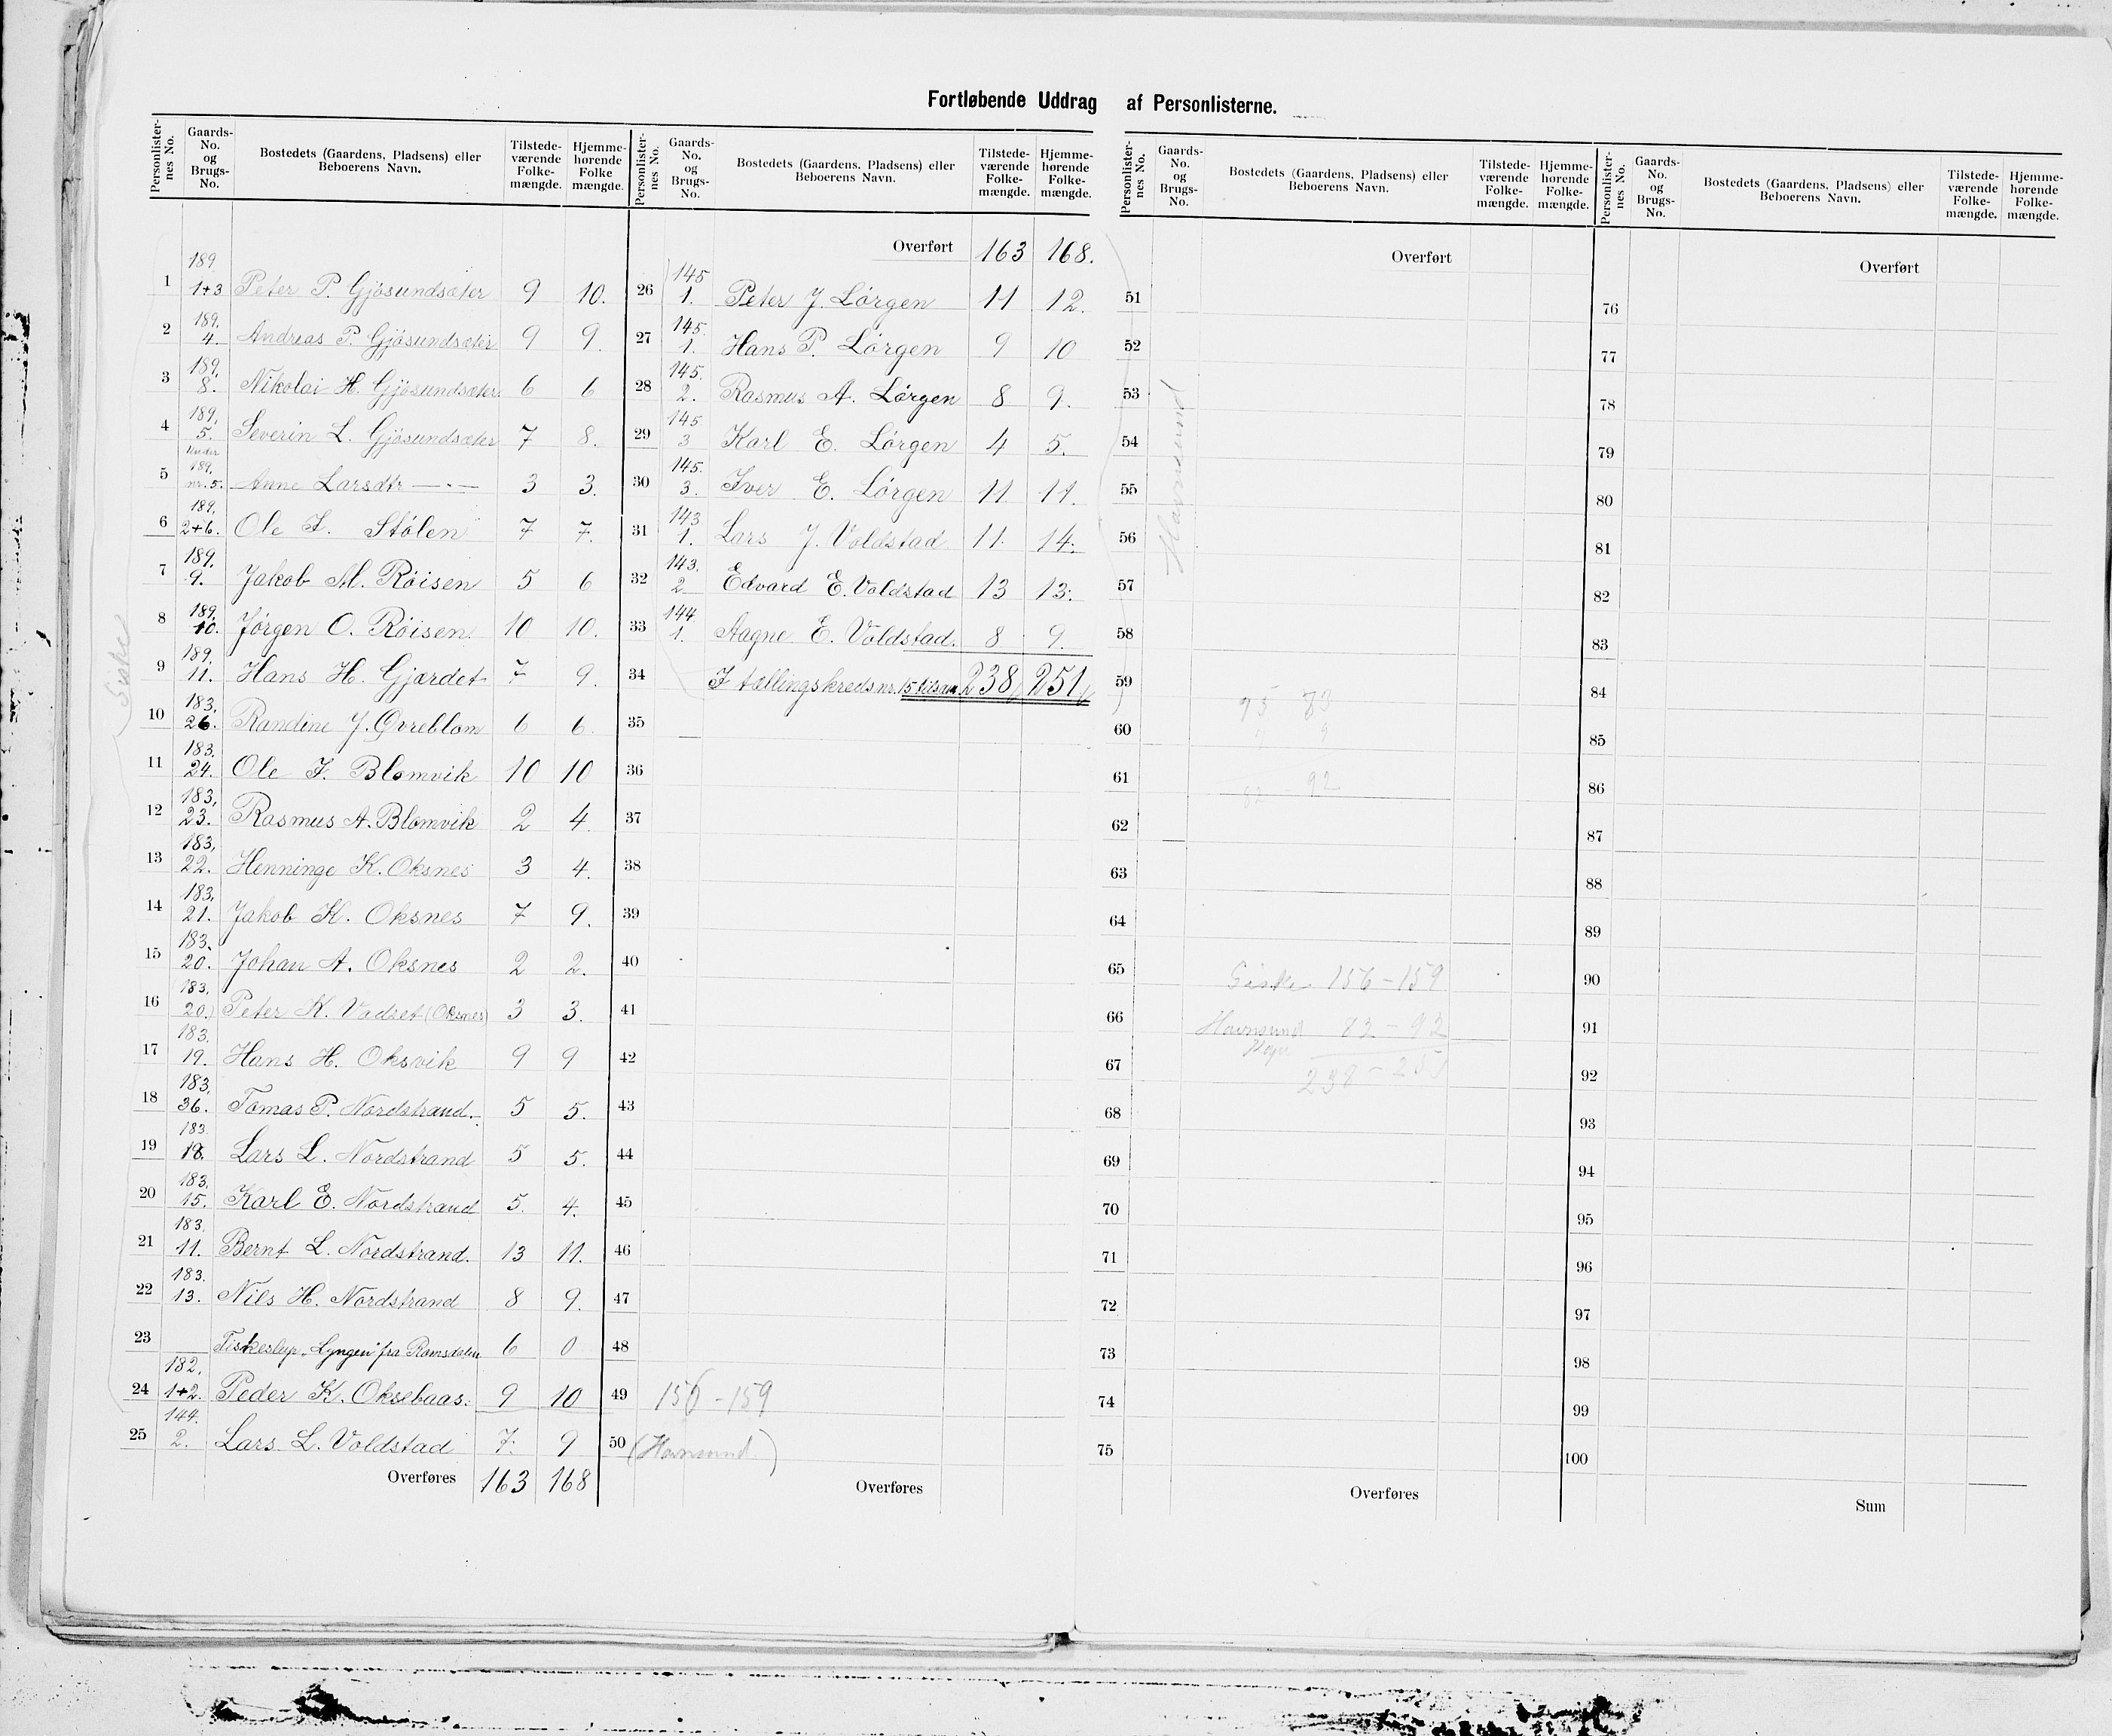 Fortløbende Uddrag af Personlisterne.
Personlister-nes No. Gaards-No. og Brugs-No. Bostedets (Gaardens, Pladsens) eller Beboerens Navn. Tilstede-værende Folke-mængde. Hjemme-hørende Folke mængde.
1 189. 1+3 Peter P. Gjøsundsæter 9 10.
2 189. 4. Andreas P. Gjøsundsæter 9 9.
3 189. 8. Nikolai H. Gjøsundsæter. 6 6
4 189. 5. Severin L. Gjøsundsæter 7 8.
5 Under 189. nr. 5. Anne Larsdtr —·— 3 3.
6 189. 2+6. Ole I. Stølen 7 7.
7 189. 9. Jakob M. Røisen 5 6
8 189. 10. Jørgen O. Røisen. 10 10.
9 189. 11. Hans H. Gjærdet 7 9.
10 183. 26. Randine J. Øvreblom 6 6.
11 183. 24. Ole I. Blomvik 10 10
12 183. 23. Rasmus A. Blomvik 2 4.
13 183. 22. Henninge K. Oksnes 3 4.
14 183. 21. Jakob K. Oksnes 7 9.
15 183. 20. Johan A. Oksnes 2 2.
16 183. 20.) Peter K. Vadset (Oksnes) 3 3.
17 183. 19. Hans H. Oksvik 9 9
18 183. 36. Tomas P. Nordstrand. 5 5.
19 183. 18. Lars L. Nordstrand 5 5.
20 183. 15. Karl E. Nordstrand 5. 4.
21 183. 11. Bernt L. Nordstrand. 13 11.
22 183. 13. Nils H. Nordstrand 8 9.
23 Fiskeslup „Lyngen" fra Romsdalen 6 0
24 182. 1+2. Peder K. Oksebaas. 9 10
25 144. 2. Lars L. Voldstad 7. 9
Overføres 163 168
Giske
Personlister-nes No. Gaards-No. og Brugs-No. Bostedets (Gaardens, Pladsens) eller Beboerens Navn. Tilstede-værende Folke-mængde. Hjemme-hørende Folke-mængde.
Overført 163 168.
26 145 1. Peter J. Lørgen 11 12.
27 145. 1. Hans P. Lørgen 9 10
28 145. 2. Rasmus A. Lørgen 8 9.
29 145 3 Karl E. Lørgen 4 5.
30 145. 3. Iver E. Lørgen 11 11.
31 143. 1. Lars J. Voldstad 11. 14.
32 143. 2 Edvard E. Voldstad 13 13.
33 144 1. Aagne E. Voldstad. 8 9.
34 I tællingskreds nr. 15 tilsam. 238 251
35
36
37
38
39
40
41
42
43
44
45
46
47
48
49 156 - 159
50 (Havnsund)
Overføres
Personlister-nes No. Gaards-No. og Brugs-No. Bostedets (Gaardens, Pladsens) eller Beboerens Navn. Tilstede-værende Folke-mængde. Hjemme-hørende Folke-mængde.
Overført
51
52
53
54
55
56
57
58
59
60
61
62
63
64
65 Giske 156 - 159
66 Havnsund 82 - 92
67 238 - 251
68
69
70
71
72
73
74
75
Overføres
Havnsund
Personlister-nes No. Gaards-No. og Brugs-No. Bostedets (Gaardens, Pladsens) eller Beboerens Navn. Tilstede-værende Folke-mængde. Hjemme-hørende Folke-mængde.
Overført
76
77
78
79
80
81
82
83
84
85
86
87
88
89
90
91
92
93
94
95
96
97
98
99
100
Sum